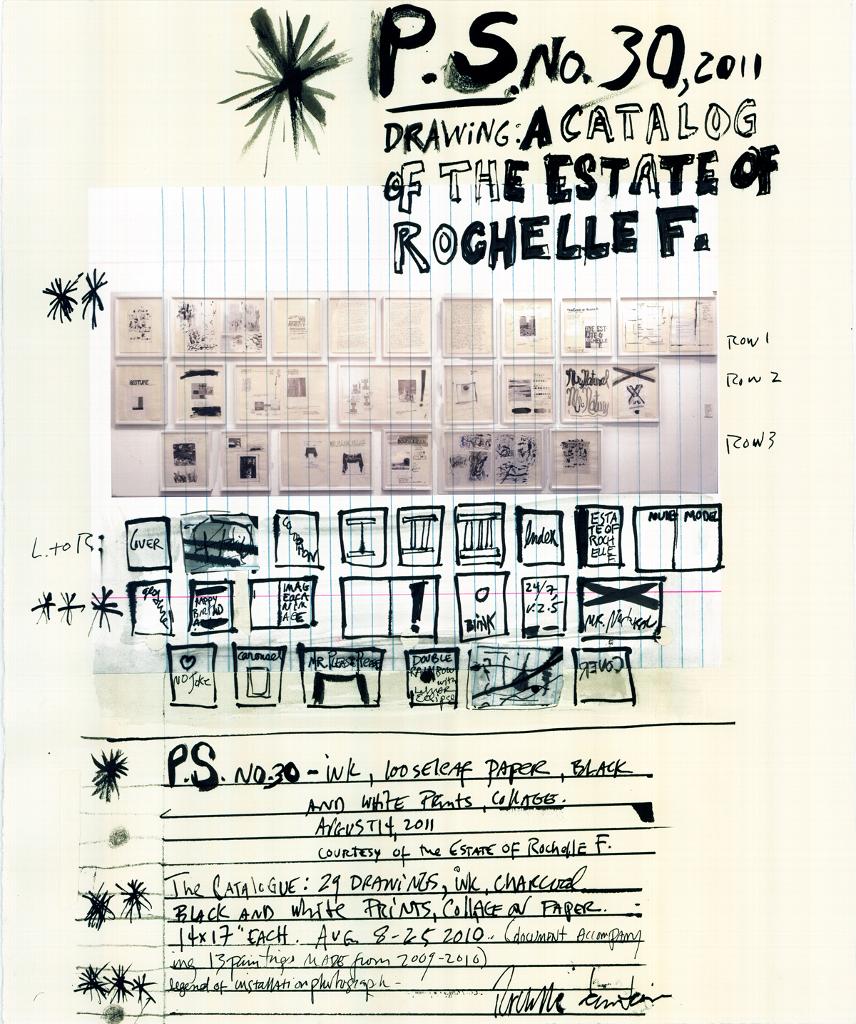 P.S. No. 30, 2011
DRAWING: A CATALOG
OF THE ESTATE OF
ROCHELLE F.
ROW 1
ROW 2
ROW 3
L. to R:
COVER
I
II
III
Index
ESTA
TE OF
ROCH
ELLE
NUDE MODEL
HAPPY
IMAG
!
BLINK
24/7
V.2.5
MR. Natural
NO Joke
carousel
MR. PLEASE PLEASE
DOUBLE
RAINBOW
with
LUNAR
ECLIPSE
COVER
P.S. NO.30 - iNK, looseleaf PAPER, BLACK
AND WHITE PRiNTS, COLLAGE.
AUGUST 14, 2011
COURTESY of the ESTATE OF Rochelle F.
The CATALOGUE: 29 DRAWINGS, iNK, CHARCOAL
BLACK AND WHITE PRINTS, COLLAGE ON PAPER.
14x17" EACH. AUG 8-25 2010. (document accompany
ing 13 paintings MADE from 2009-2010)
legend of installation photograph -